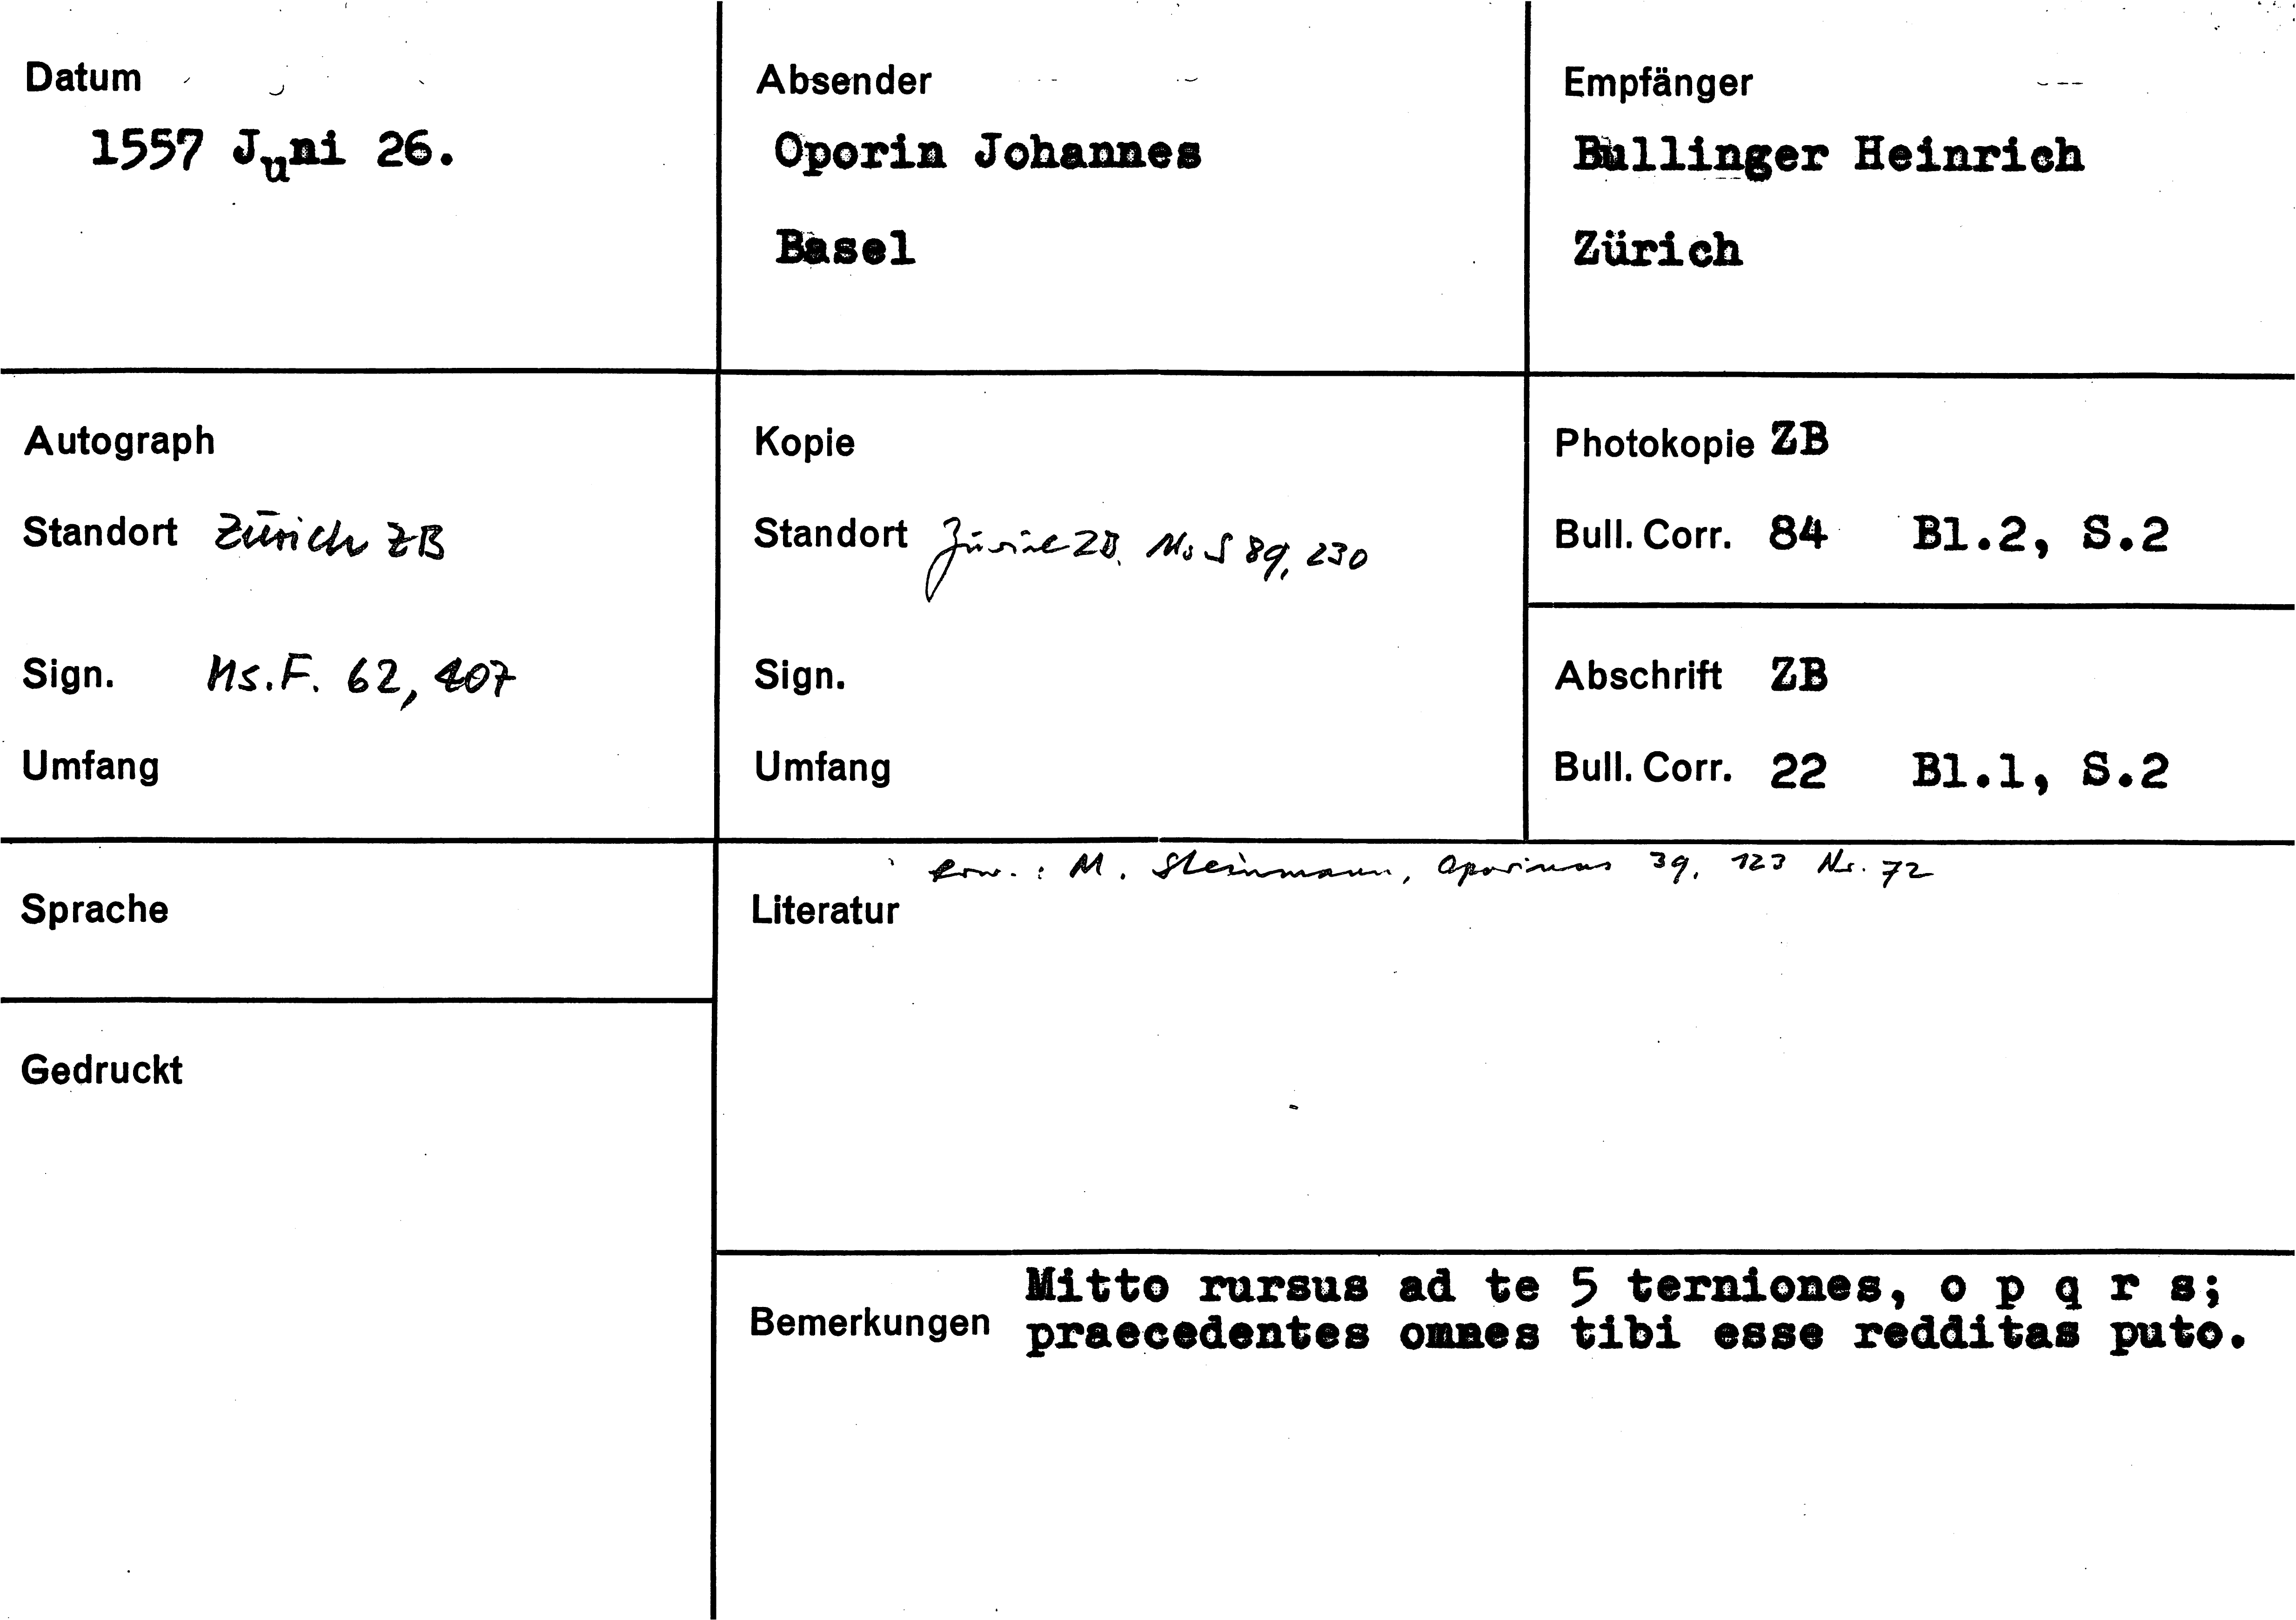 Datum
1557 Juni 26.
Absender
Oporin Johannes
Basel
Empfänger
Bullinger Heinrich
Zürich
Autograph
Standort Zürich ZB
Sign. Ms.F. 62, 407
Umfang
Kopie
Standort Zürich ZB. Ms S 89, 230
Sign.
Umfang
Photokopie ZB
Bull. Corr. 84 Bl.2, S.2
Abschrift ZB
Bull. Corr. 22 Bl.1, S.2
Sprache
Gedruckt
Erw.: M. Steinmann, Oporinus 39, 123 Nr. 72
Literatur
Bemerkungen
Mitto rursus ad te 5 terniones, o p q r s;
praecedentes omnes tibi esse redditas puto.